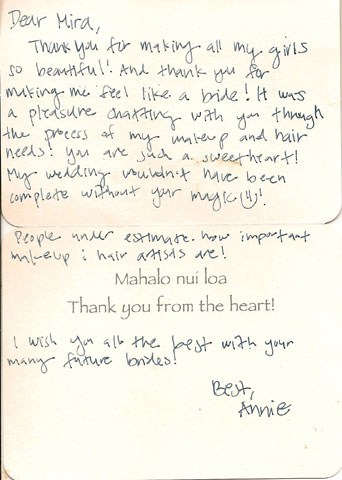 Dear Mira,
Thank you for making all my girls
so beautiful! And thank you for
making me feel like a bride! It was
a pleasure chatting with you through
the process of my makeup and hair
needs! You are such a sweetheart!
My wedding wouldn't have been
complete without your magic!
People under estimate how important
makeup & hair artists are!
Mahalo nui loa
Thank you from the heart!
I wish you all the best with your
many future brides!
Best,
Annie